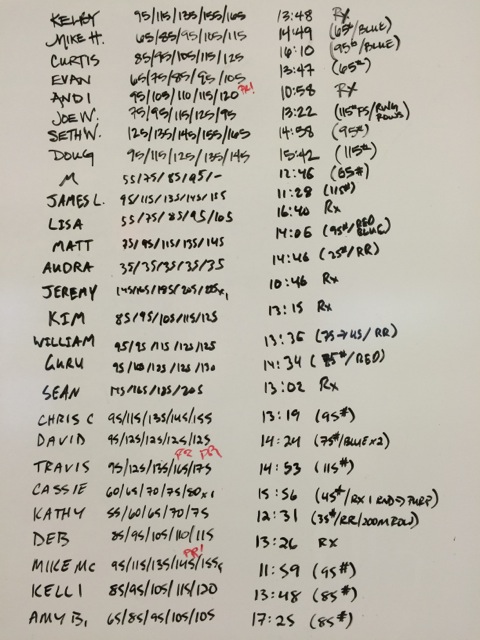 KELLY 95/115/135/155/165 13:48 Rx
MIKE H. 65/85/95/105/115 14:49 (65#/BLUE)
CURTIS 85/95/105/115/125 16:10 (95#/BLUE)
EVAN 65/75/85/95/105 13:47 (65#)
ANDI 95/105/110/115/120 PR! 10:58 Rx
JOE W. 75/95/115/125/95 13:22 (115# FS/RING ROWS)
SETH W. 125/135/145/155/165 14:58 (95#)
DOUG 95/115/125/135/145 15:42 (115#)
M 55/75/85/95/- 12:46 (65#)
JAMES L. 95/115/135/145/155 11:28 (115#)
LISA 55/75/85/95/105 16:40 Rx
MATT 75/95/115/135/145 14:06 (95#/RED BLUE)
AUDRA 35/35/35/35/35 14:46 (25#/RR)
JEREMY 145/165/185/205/225x1 10:46 Rx
KIM 85/95/105/115/125 13:15 Rx
WILLIAM 95/95/115/125/125 13:36 (75→45/RR)
GURU 95/125/125/130 14:34 (#/RED)
SEAN /165/185/205 13:02 Rx
CHRIS C 95/115/135/145/155 13:19 (95#)
DAVID 95/125/125/125/125 14:24 (75#/BLUEx2)
PR PR!
TRAVIS 95/125/155/165/175 14:53 (115#)
CASSIE 60/65/70/75/80x1 15:56 (45#/RX 1 RND→PURP)
KATHY 55/60/65/70/75 12:31 (35#/RR/200M ROW)
DEB 85/95/105/110/115 13:26 Rx
PR!
MIKE MC 95/115/135/145/155 11:59 (95#)
KELLI 85/95/105/115/120 13:48 (85#)
AMY B. 65/85/95/105/105 17:25 (85#)